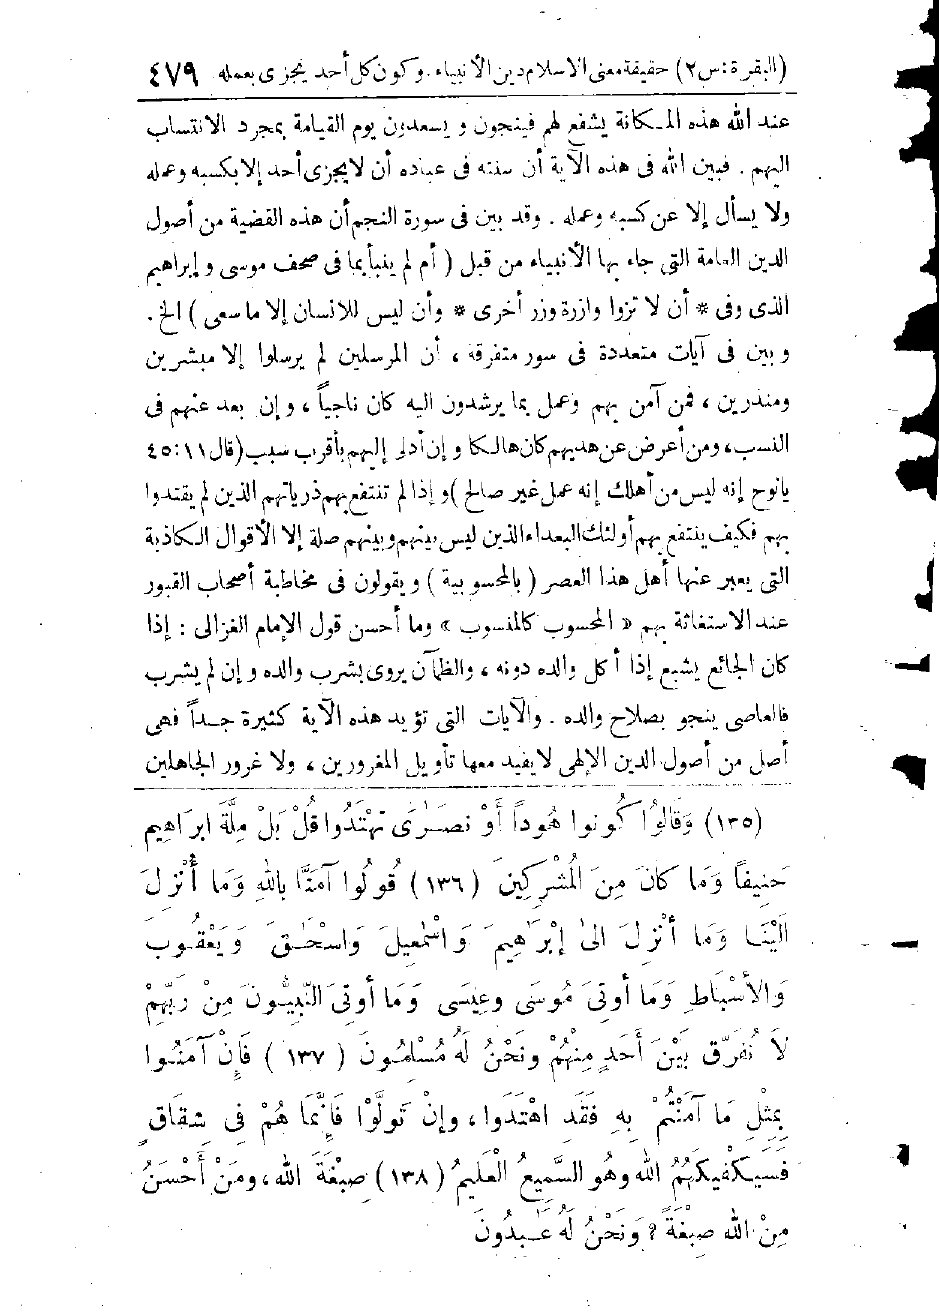 (البقرة: س ٢) حقيقة معنى الاسلام دين الأنبياء. وكون كل أحد يجزى بعمله ٤٧٩
عند الله هذه المكانة يشفع لهم فينجون ويسعدون يوم القيامة بمجرد الانتساب
اليهم . فبين الله فى هذه الآية أن سنته فى عباده أن لا يجزى أحد إلا بكسبه وعمله
ولا يسأل إلا عن كسبه وعمله . وقد بين فى سورة النجم أن هذه القضية من أصول
الدين العامة التى جاء بها الأنبياء من قبل ( أم لم ينبأ بما فى صحف موسى وإبراهيم
الذى وفى * أن لا تزوا وازرة وزر أخرى * وأن ليس للانسان إلا ما سعى ) الخ .
وبين فى آيات متعددة فى سور متفرقة ، أن المرسلين لم يرسلوا إلا مبشرين
ومنذرين ، فمن آمن بهم وعمل بما يرشدون اليه كان ناجياً ، وإن بعد عنهم فى
النسب، ومن أعرض عن هديهم كان هالكا وإن أدلى إليهم بأقرب سبب (قال ١١ : ٤٥
يانوح إنه ليس من أهلك إنه عمل غير صالح ) وإذا لم تنتفع بهم ذرياتهم الذين لم يقتدوا
بهم فكيف ينتفع بهم أولئك البعداء الذين ليس بينهم وبينهم صلة إلا الأقوال الكاذبة
التى يعبر عنها أهل هذا العصر ( بالمحسوبية ) ويقولون فى مخاطبة أصحاب القبور
عند الاستغاثة بهم « المحسوب كالمنسوب » وما أحسن قول الإمام الغزالى : إذا
كان الجائع يشبع إذا أكل والده دونه ، والظمآن يروى بشرب والده وإن لم يشرب
فالعاصى ينجو بصلاح والده . والآيات التى تؤيد هذه الآية كثيرة جداً فهى
أصل من أصول الدين الإلهى لا يفيد معها تأويل المغرورين ، ولا غرور الجاهلين
(١٣٥) وَقَالُوا كُونوا هُوداً أَوْ نصَـٰرَىٰ تهْتَدُوا قُلْ بَلْ مِلَّةَ ابرَاهِيم
حَنِيفاً وَمَا كانَ مِنَ الْمُشْرِكِينَ (١٣٦) قُولُوا آمَنَّا باللهِ وَمَا أُنْزِلَ
الَيْنَا وَمَا أنْزِلَ الىٰ إبْرَاهِيمَ وَاسْمٰعِيلَ وَاسْحٰقَ وَيَعْقُوبَ
وَالأسْبَاطِ وَمَا أوتِىَ مُوسَى وعِيسَى وَمَا أوتِىَ النَّبِيُّونَ مِنْ رَبِّهِمْ
لاَ نُفَرِّق بَيْنَ أَحَدٍ مِنْهُمْ ونَحْنُ لَهُ مُسْلمُونَ ( ١٣٧ ) فَإِنْ آمَنُوا
بِمِثْلِ مَا آمَنْتُمْ بِهِ فَقَدِ اهْتَدَوا ، وإنْ تَولَّوْا فَإنَّمَا هُمْ فِى شقَاقٍ
فَسَيَكْفِيكَهُمُ اللهُ وهُو السَّمِيعُ الْعَلِيمُ (١٣٨) صِبْغَةَ اللهِ ، ومَنْ أَحْسَنُ
مِنْ اللهِ صِبْغَةً ؟ وَنَحْنُ لَهُ عَـٰبِدُونَ